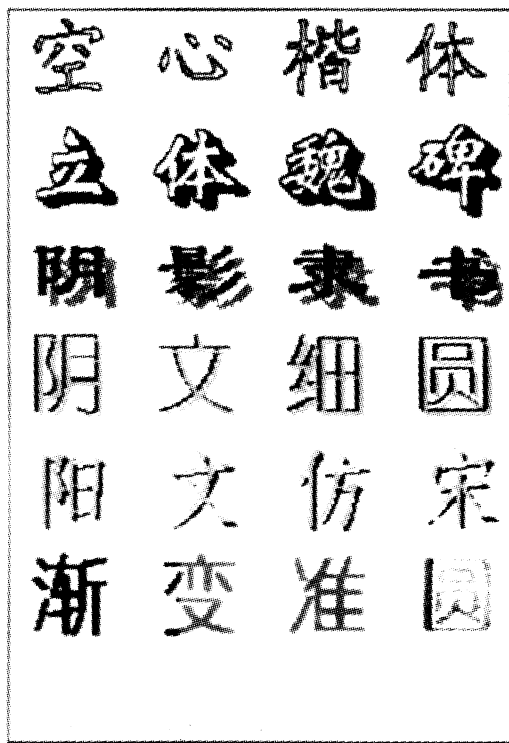 空心楷体
立体魏碑
阴影隶书
阴文细圆
阳文仿宋
渐变准圆